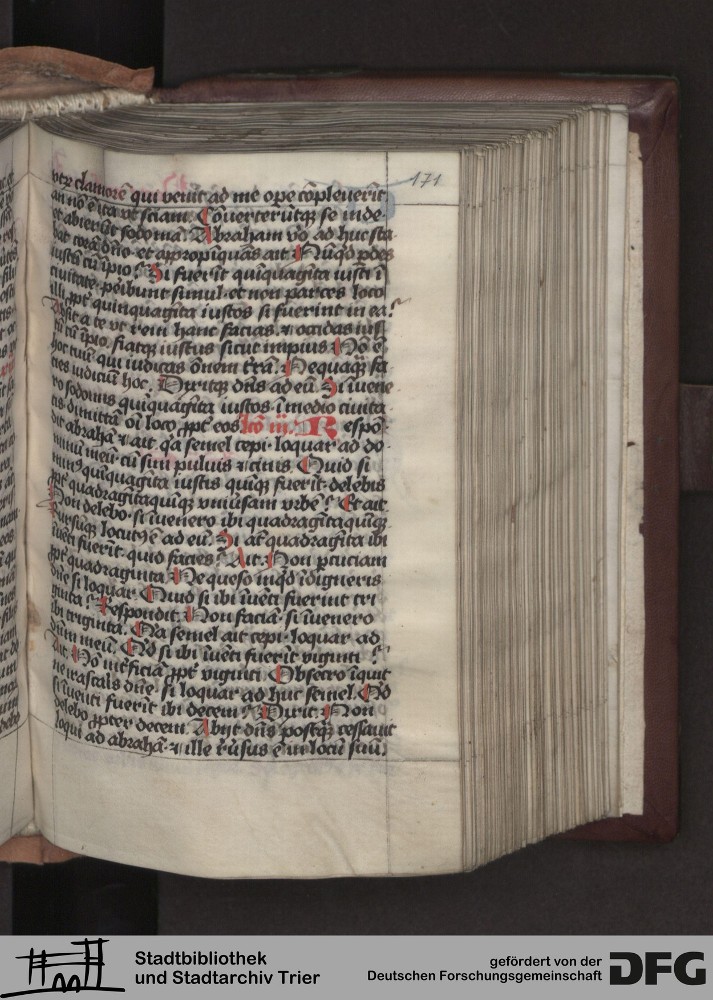 171
utrum clamorē qui venit ad me opē cōpleverīt
an nō ē ita vt sciam. Cōverterūtqȝ se inde
et abierūt sodomā. Abraham vo ad huc sta-
bat corā dno. et appropīquās ait. Nūqd pdes
iustū cū īpio? Si fuerīt quīquagīta iusti ī
civitate. peribunt simul. et non parces loco
illi ꝓpt quinquagīta iustos si fuerint in ea?
Absit a te vt rem hanc facias. ⁊ occidas ius-
tū cū īpio. fiatqȝ iustus sicut impius. Nō ē
hoc tuū qui iudicas ōnem trā. Nequaqȝ fa-
cies iudiciū hoc. Dixitqȝ dns ad eū. Si īvene-
ro sodomis quīquagīta iustos ī medio civita-
tis. dimittā oī loco ꝓpt eos lcō iii. Respō-
dit abrahā ⁊ ait. qa semel cepi. loquar ad do-
minū meū cū sim pulvis ⁊ cinis. Quid si
min⁹ quīquagīta iustis quīqȝ fuerīt. delebis
ꝓpt quadragītaquīqȝ vniūsam vrbē? Et ait.
Non delebo. si īvenero ibi quadragītaquīqȝ.
Rursūqȝ locut⁹ ē ad eū. Si at quadragīta ibi
īvēti fuerīt. quid facies? Ait. Non pcutiam
ꝓpt quadraginta. Ne queso inqd īdigneris
dne si loquar. Quid si ibi īvēti fuerint tri
ginta? Respondit. Non faciā. si īvenero
ibi triginta. Qa semel ait cepi. loquar ad
dnm meū. Qd si ibi īvēti fuerīt viginti?
Ait. Nō īterficiā ꝓpt viginti. Obsecro īquit
ne irascaris dne. si loquar ad huc semel. Qd
si īventi fuerīt ibi decem? Dixit. Non
delebo ꝓpter decem. Abijt dns postqȝ cessavit
loqui ad abrahā. ⁊ ille rūsus ē in locū suū.
Stadtbibliothek
und Stadtarchiv Trier
gefördert von der
Deutschen Forschungsgemeinschaft
DFG